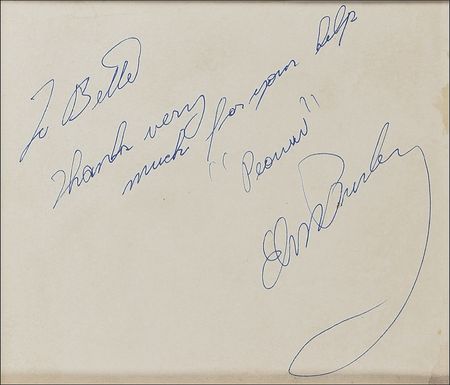 To Bette
Thank very
much for your help
"Peanuts"
Elvis Presley